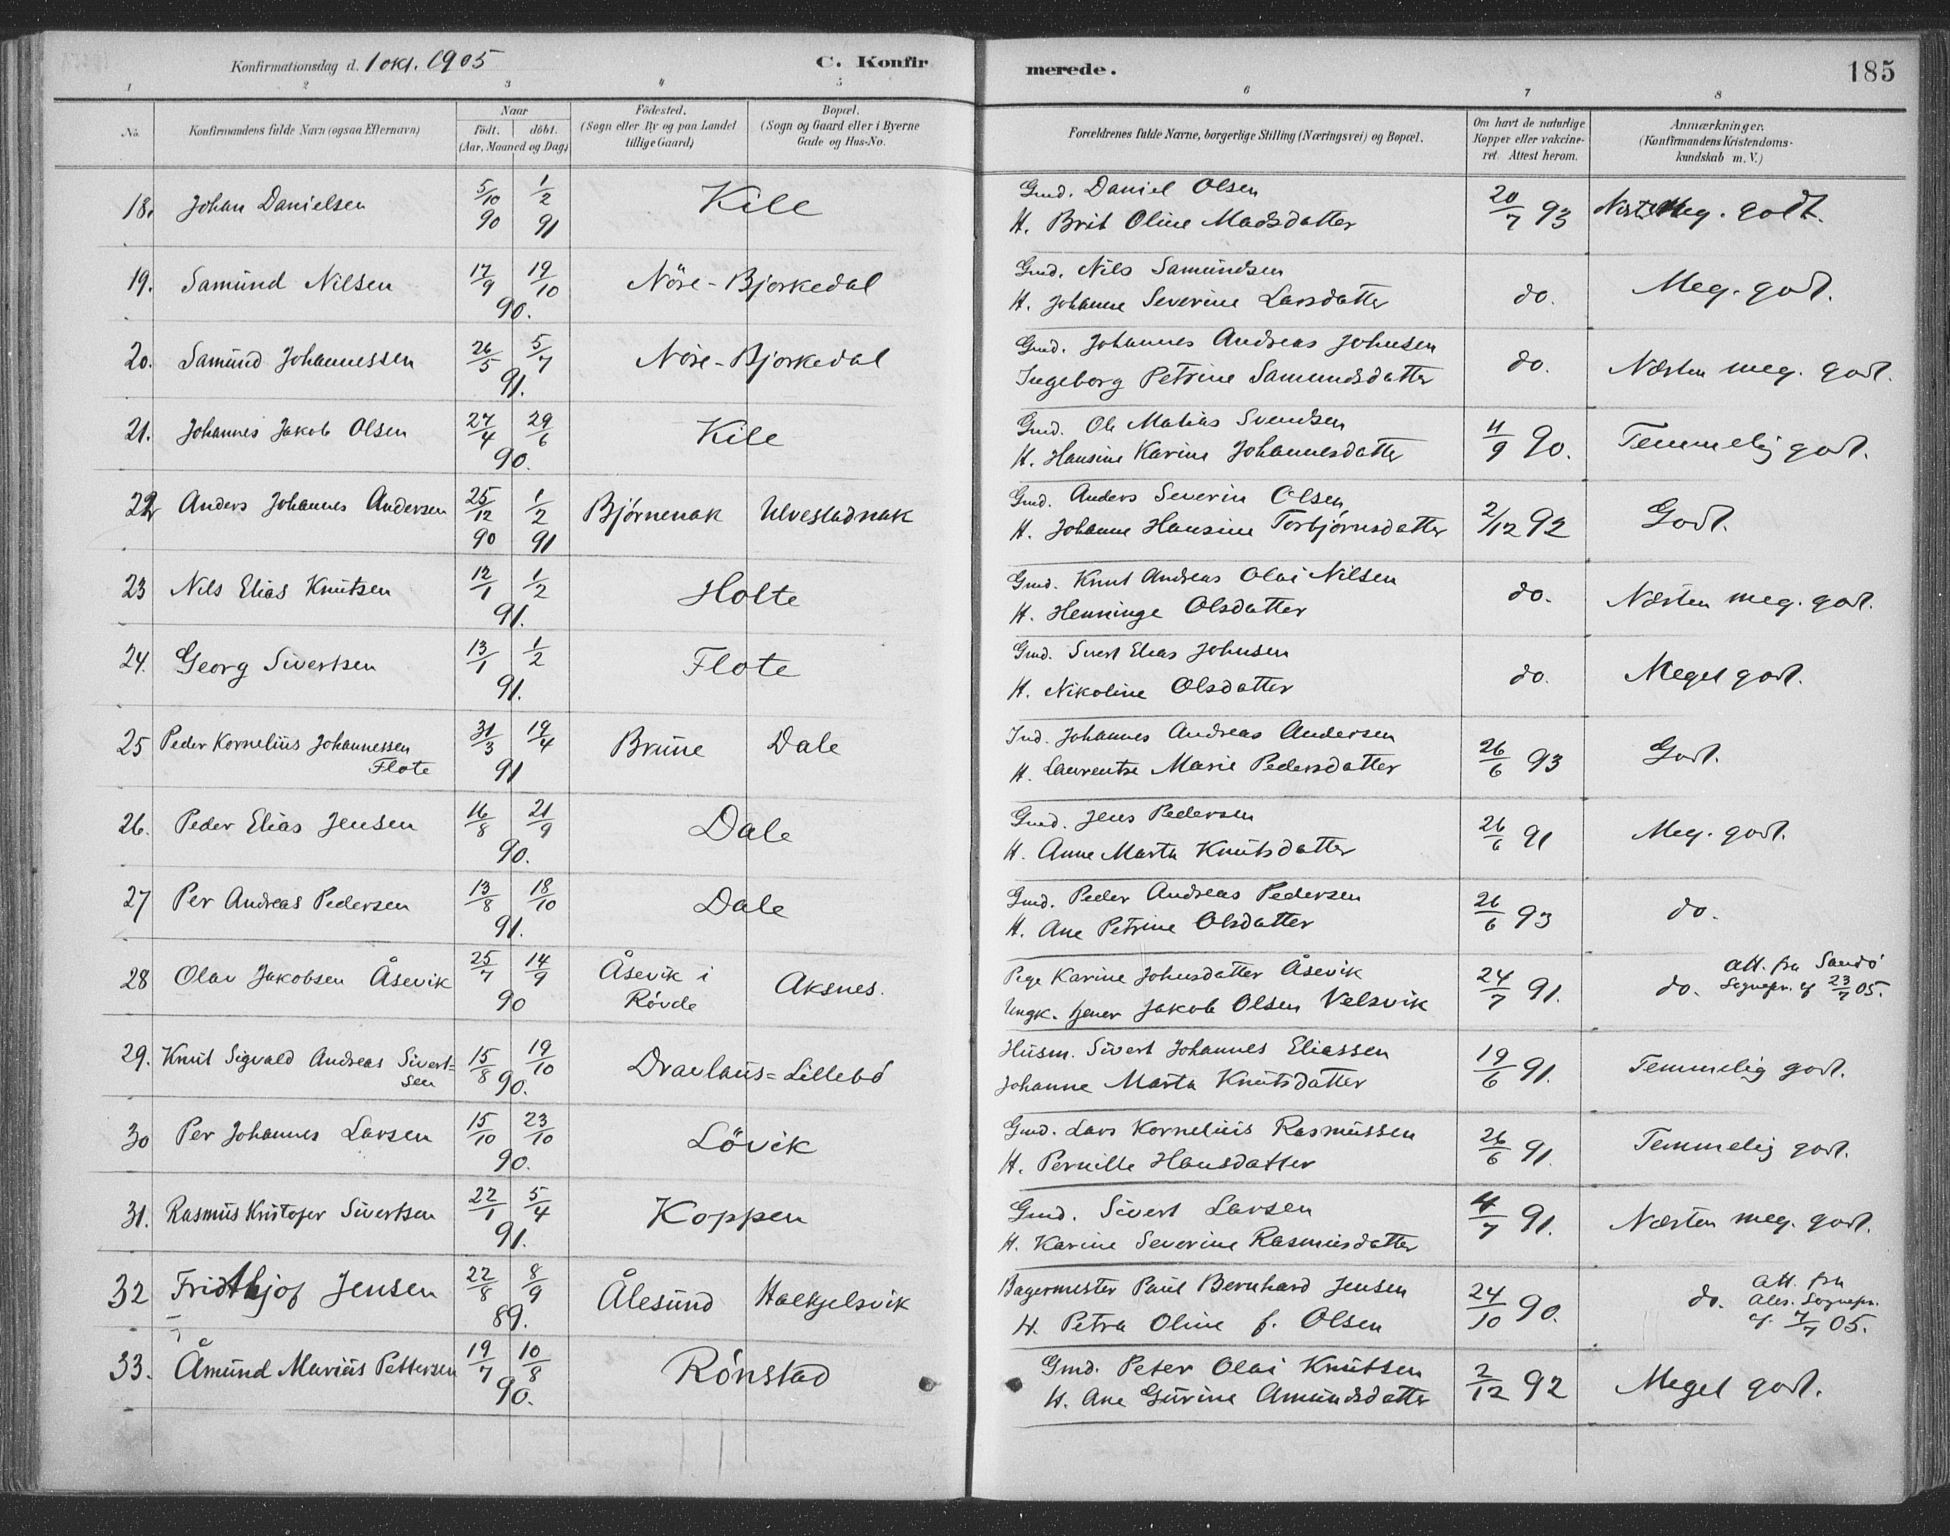 Konfirmationsdag d. 1 okt. 1905
C. Konfir
merede.
185
1 2 3 4 5 6 7 8
No.
Konfirmandens fulde Navn (ogsaa Efternavn)
Naar
födt. döbt.
(Aar, Maaned og Dag)
Födested.
(Sogn eller By og paa Landet
tillige Gaard)
Bopæl.
(Sogn og Gaard eller i Byerne
Gade og Hus-No.
Forældrenes fulde Navne, borgerlige Stilling (Næringsvei) og Bopæl.
Om havt de naturlige
Kopper eller vakcine-
ret. Attest herom.
Anmærkninger.
(Konfirmandens Kristendoms-
kundskab m. V.)
18. Johan Danielsen 5/10 90 1/2 91 Kile Gmd. Daniel Olsen 20/7 93 meg. godt.
H. Brit Oline Madsdatter
19. Samund Nilsen 17/9 19/10 90. Nöre-Bjorkedal Gmd. Nils Samundsen do. Meg. godt.
H. Johanne Severine Larsdatter
20. Samund Johannessen 26/5 5/7 91. Nöre-Bjorkedal Gmd. Johannes Andreas Johnsen do. Næsten meg. godt.
Ingeborg Petrine Samundsdatter
21. Johannes Jakob Olsen 27/4 29/6 90. Kile Gmd. Ole Matias Svendsen 11/9 90. Temmelig godt.
H. Hansine Karine Johannesdatter
22 Anders Johannes Andersen 25/12 90 1/2 91 Bjørnenak Ulvestadnak Gmd. Anders Severin Olsen 2/12 92 Godt.
H. Johanne Hansine Torbjørnsdatter
23 Nils Elias Knutsen 12/1 1/2 91. Holte Gmd. Knut Andreas Olai Nilsen do. Næsten meg. godt.
H. Henninge Olsdatter
24. Georg Sivertsen 13/1 1/2 91. Flote Gmd. Sivert Elias Johnsen do. Meget godt.
H. Nikoline Olsdatter
25 Peder Kornelius Johannessen 31/3 19/4 91 Brune Dale Ind. Johannes Andreas Andersen 26/6 93 Godt.
Flote H. Laurentse Marie Pedersdatter
26. Peder Elias Jensen 16/8 21/9 90. Dale Gmd. Jens Pedersen 26/6 91 Meg. godt.
H. Anne Marta Knutsdatter
27 Per Andreas Pedersen 13/8 18/10 91. Dale Gmd. Peder Andreas Pedersen 26/6 93 do.
H. Ane Petrine Olsdatter
28 Olav Jakobsen Åsevik 25/7 14/9 90 Åsevik i Rövde Aksnes. Pige Karine Johnsdatter Åsevik 24/7 91. do. Att. fra Sandö
Ungk. tjener Jakob Olsen Velsvik Sognepr. af 23/7 05.
29. Knut Sigvald Andreas Sivert= 15/8 19/10 90. Dravlaus=Lillebö Husm. Sivert Johannes Eliassen 19/6 91. Temmelig godt.
sen Johanne Marta Knutsdatter
30 Per Johannes Larsen 15/10 23/10 90. Lövik Gmd. Lars Kornelius Rasmussen 26/6 91. Temmelig godt.
H. Pernille Hansdatter
31. Rasmus Kristofer Sivertsen 22/1 5/4 91. Koppen Gmd. Sivert Larsen 4/7 91. Næsten meg. godt.
H. Karine Severine Rasmusdatter
32 Fridthjof Jensen 22/8 8/9 89. Ålesund Halkjelsvik Bagermester Paul Bernhard Jensen 24/10 90. do. Att. fra
H. Petra Oline f. Olsen Ales. Sognepr.
af 7/7 05.
33. Åmund Marius Pettersen 19/7 10/8 90. Rönstad Gmd. Peter Olai Knutsen 2/12 92 Meget godt.
H. Ane Gurine Amundsdatter